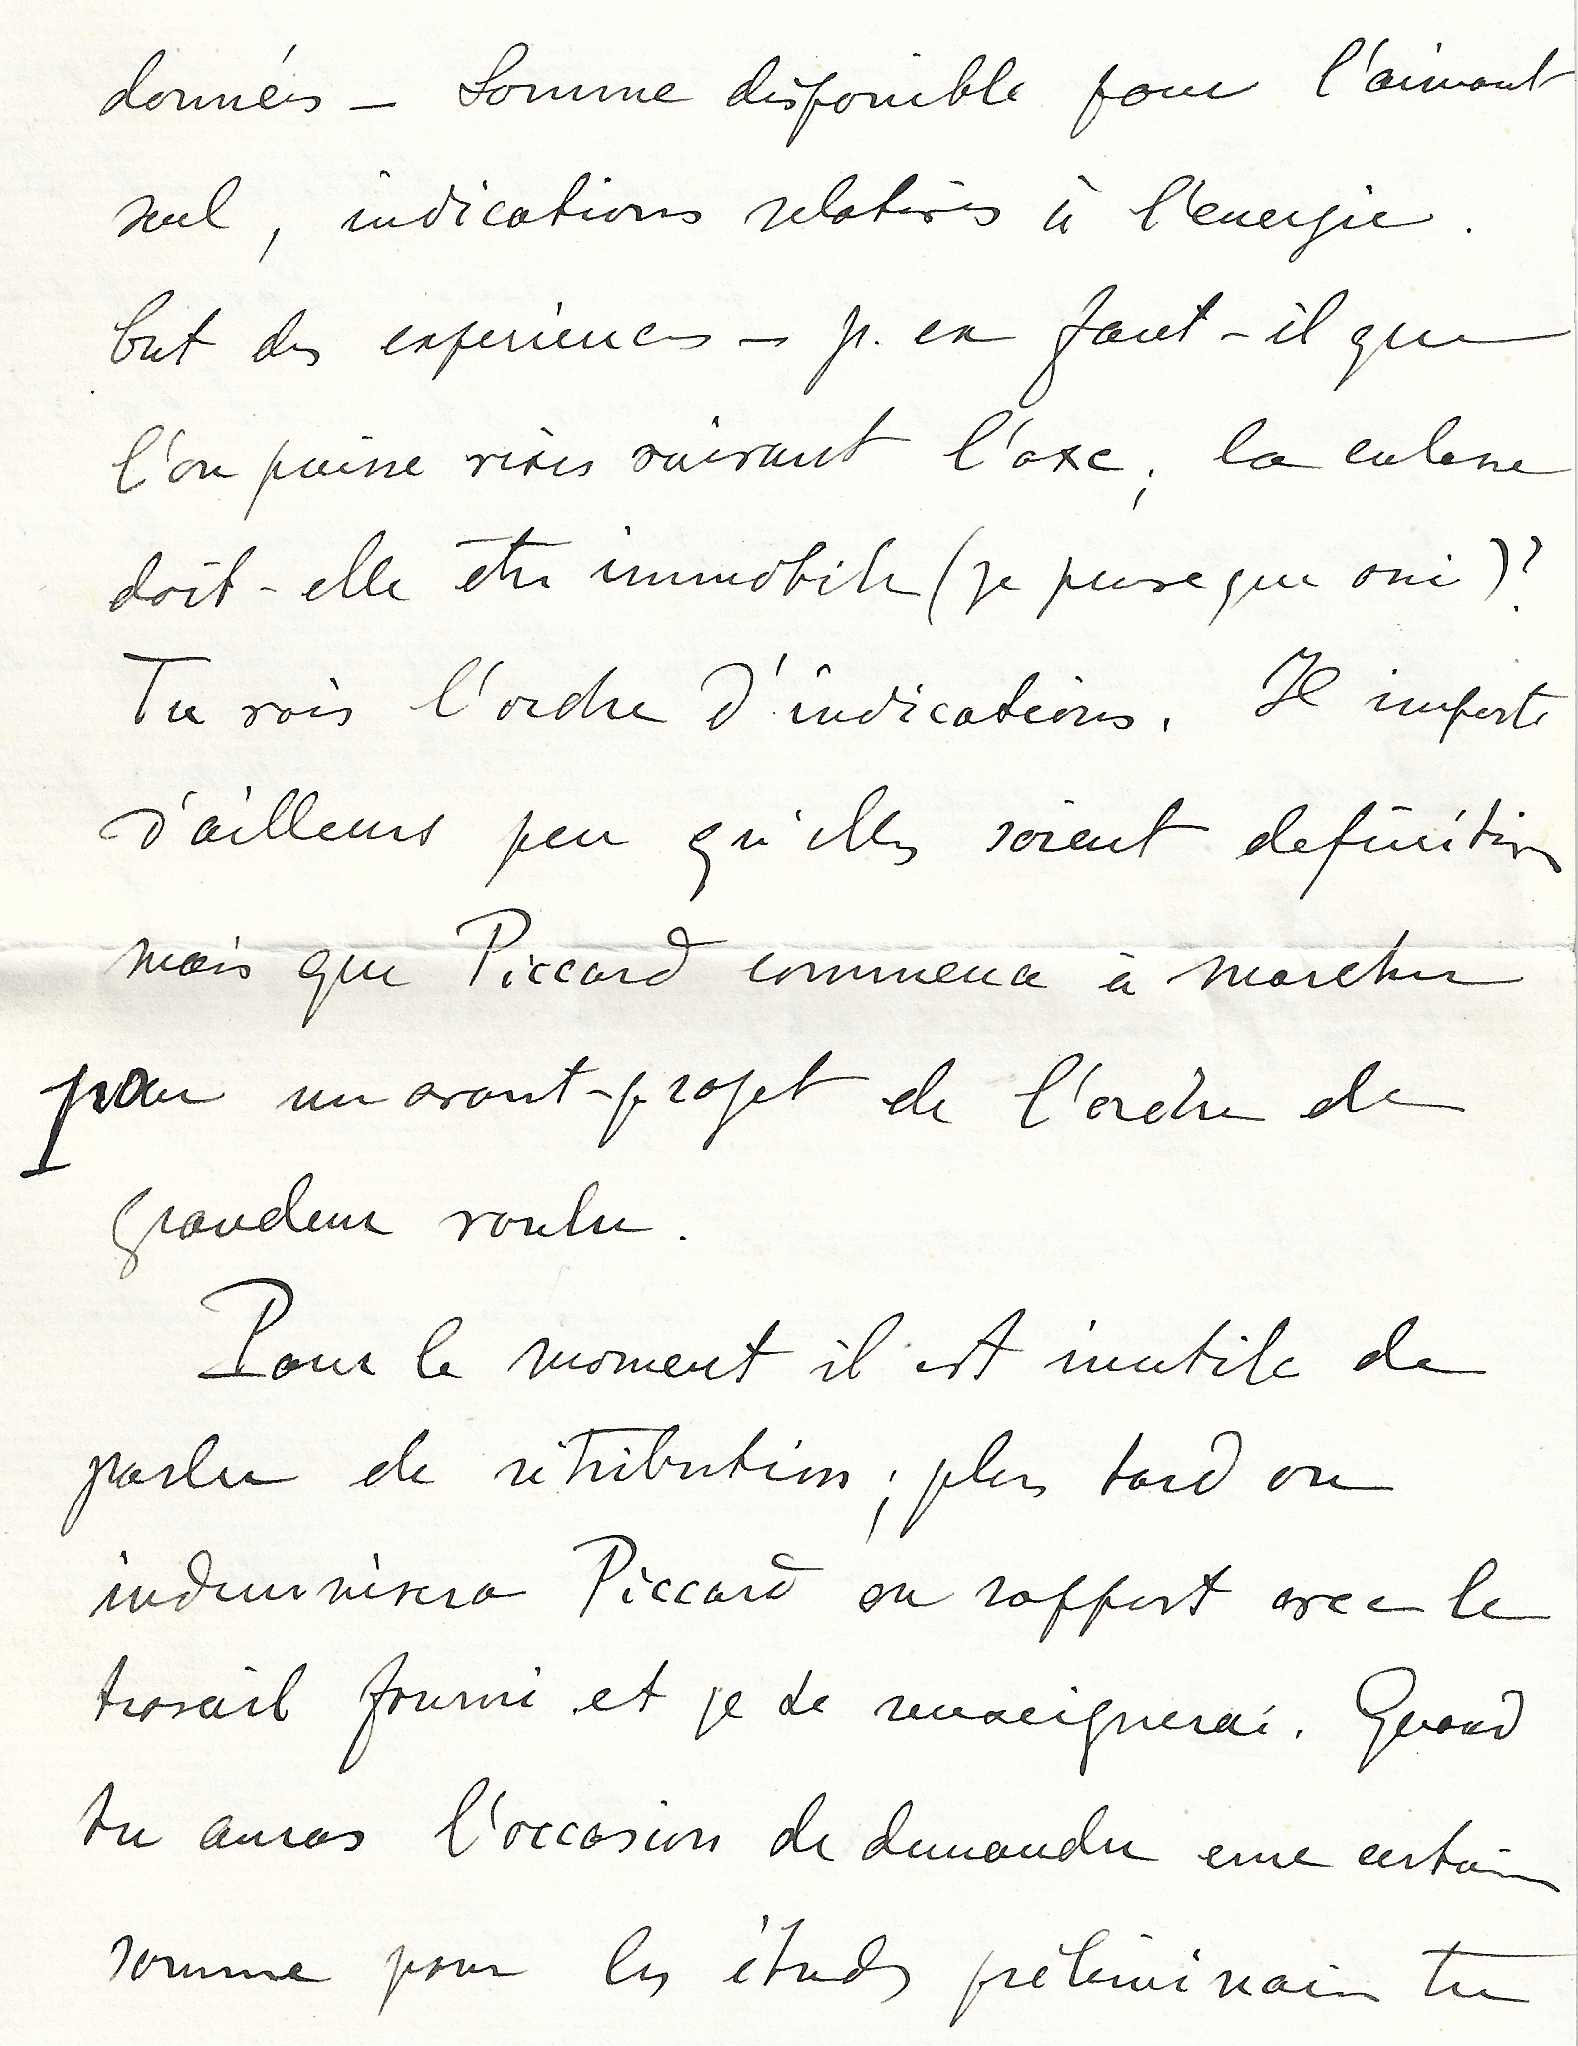 données – Somme disponible pour l'aimant
seul, indications relatives à l'énergie.
but des experiences – p. ex faut-il que
l'on puisse viser suivant l'axe, la culasse
doit-elle être immobile (je pense que oui)?
Tu vois l'ordre d'indications. Il importe
d'ailleurs peu qu'elles soient definitives
mais que Piccard commence à marcher
pour un avant-projet de l'ordre de
grandeur voulu.
Pour le moment il est inutile de
parler de rétribution; plus tard on
indemnisera Piccard en rapport avec le
travail fourni et je te renseignerai. Quand
tu auras l'occasion de demander une certaine
somme pour les études préliminaires tu